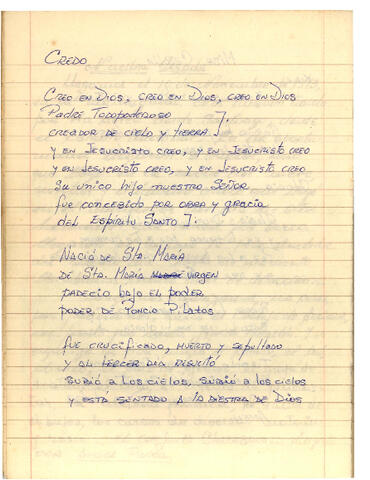 CREDO
CREO EN DIOS, CREO EN DIOS, CREO EN DIOS
PADRE TODOPODEROSO ].
CREADOR DE CIELO Y TIERRA
Y EN JESUCRISTO CREO, Y EN JESUCRISTO CREO
Y EN JESUCRISTO CREO, Y EN JESUCRISTO CREO
SU UNICO HIJO NUESTRO SEÑOR
FUE CONCEBIDO POR OBRA Y GRACIA
DEL ESPIRITU SANTO ].
NACIÓ DE STA. MARÍA
DE STA. MARIA VIRGEN
PADECIO BAJO EL PODER
PODER DE PONCIO PILATOS
FUE CRUCIFICADO, MUERTO Y SEPULTADO
Y AL TERCER DIA
SUBIÓ A LOS CIELOS, SUBIÓ A LOS CIELOS
Y ESTÁ SENTADO A LA DIESTRA DE DIOS